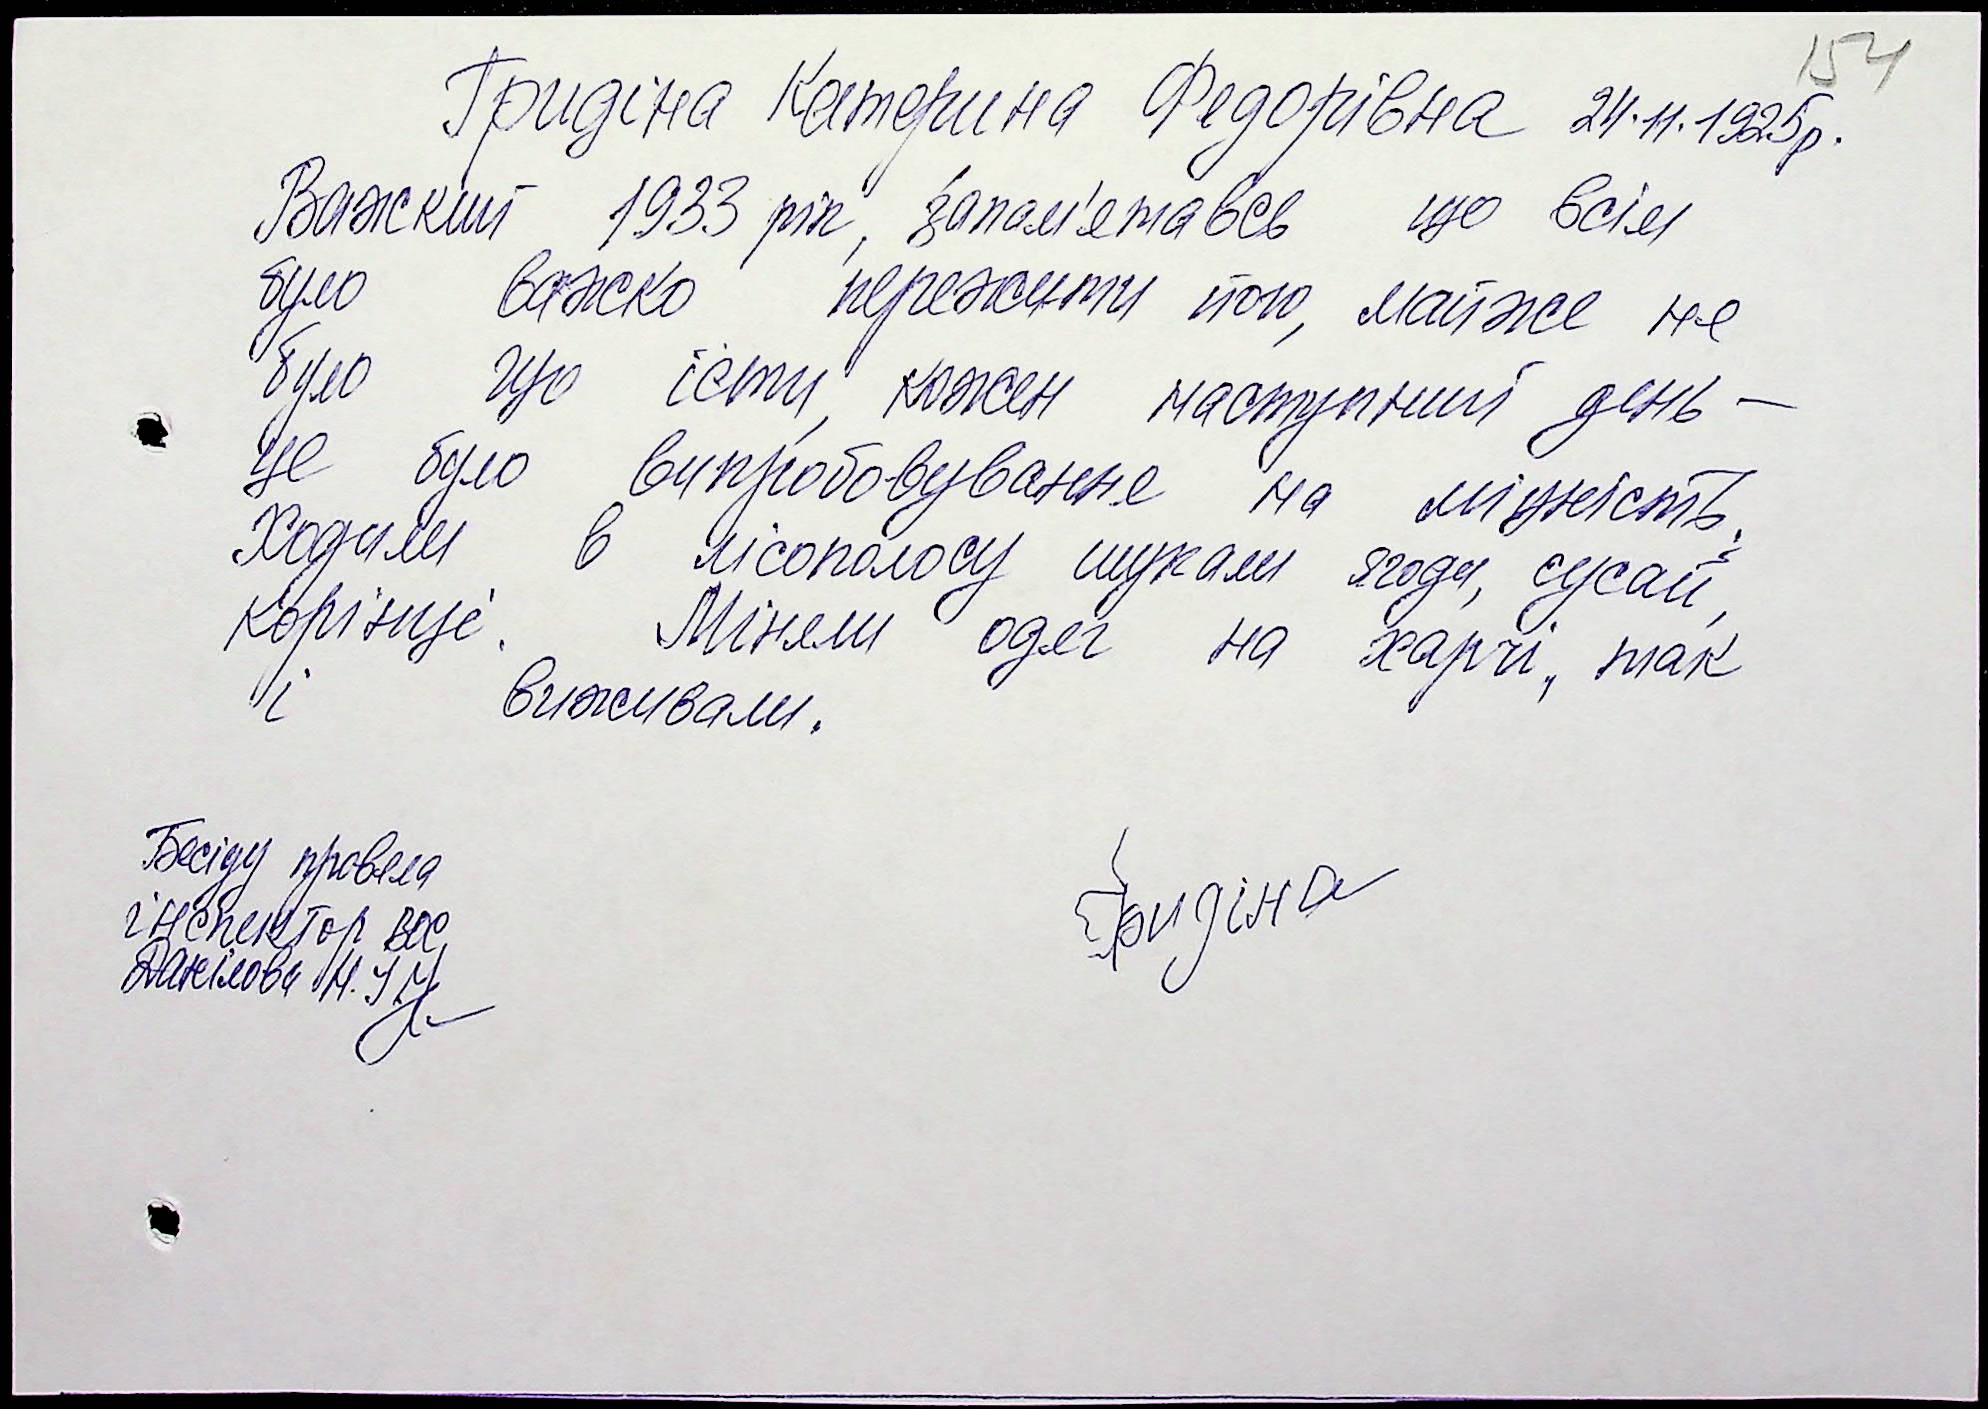 154
Гридіна Катерина Федорівна 24.11.1925р.
Важкий 1933 рік, запам'ятавсь що всім
було важко пережити його, майже не
було що їсти, кожен наступний день –
це було випробовування на міцність.
Ходили в лісополосу шукали ягоди, сусай,
корінці. Міняли одяг на харчі, так
і виживали.
Бесіду провела
інспектор ВОС
Данілова Н.
Гридіна